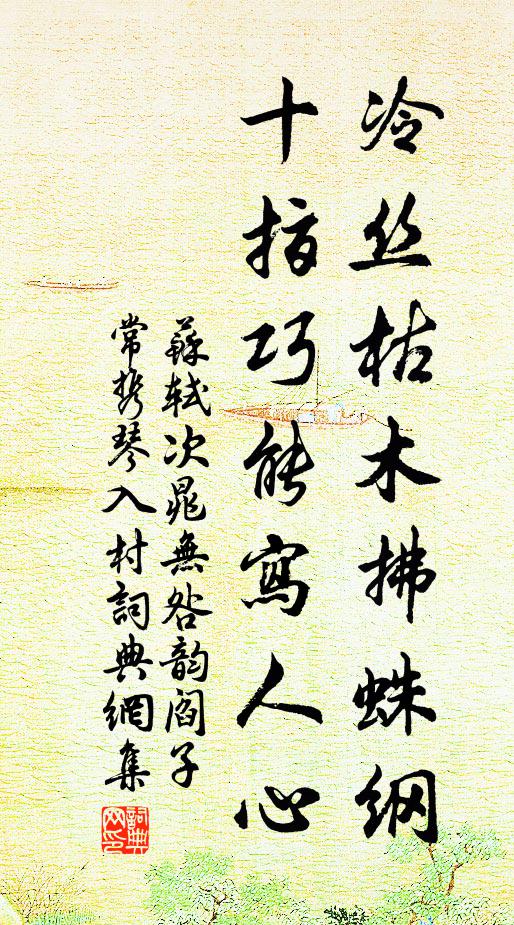 冷丝枯木拂蛛纲
十指巧能寫人心
蘇軾次晁無咎韵阎子
常携琴入村詞典網集
詞典
网印